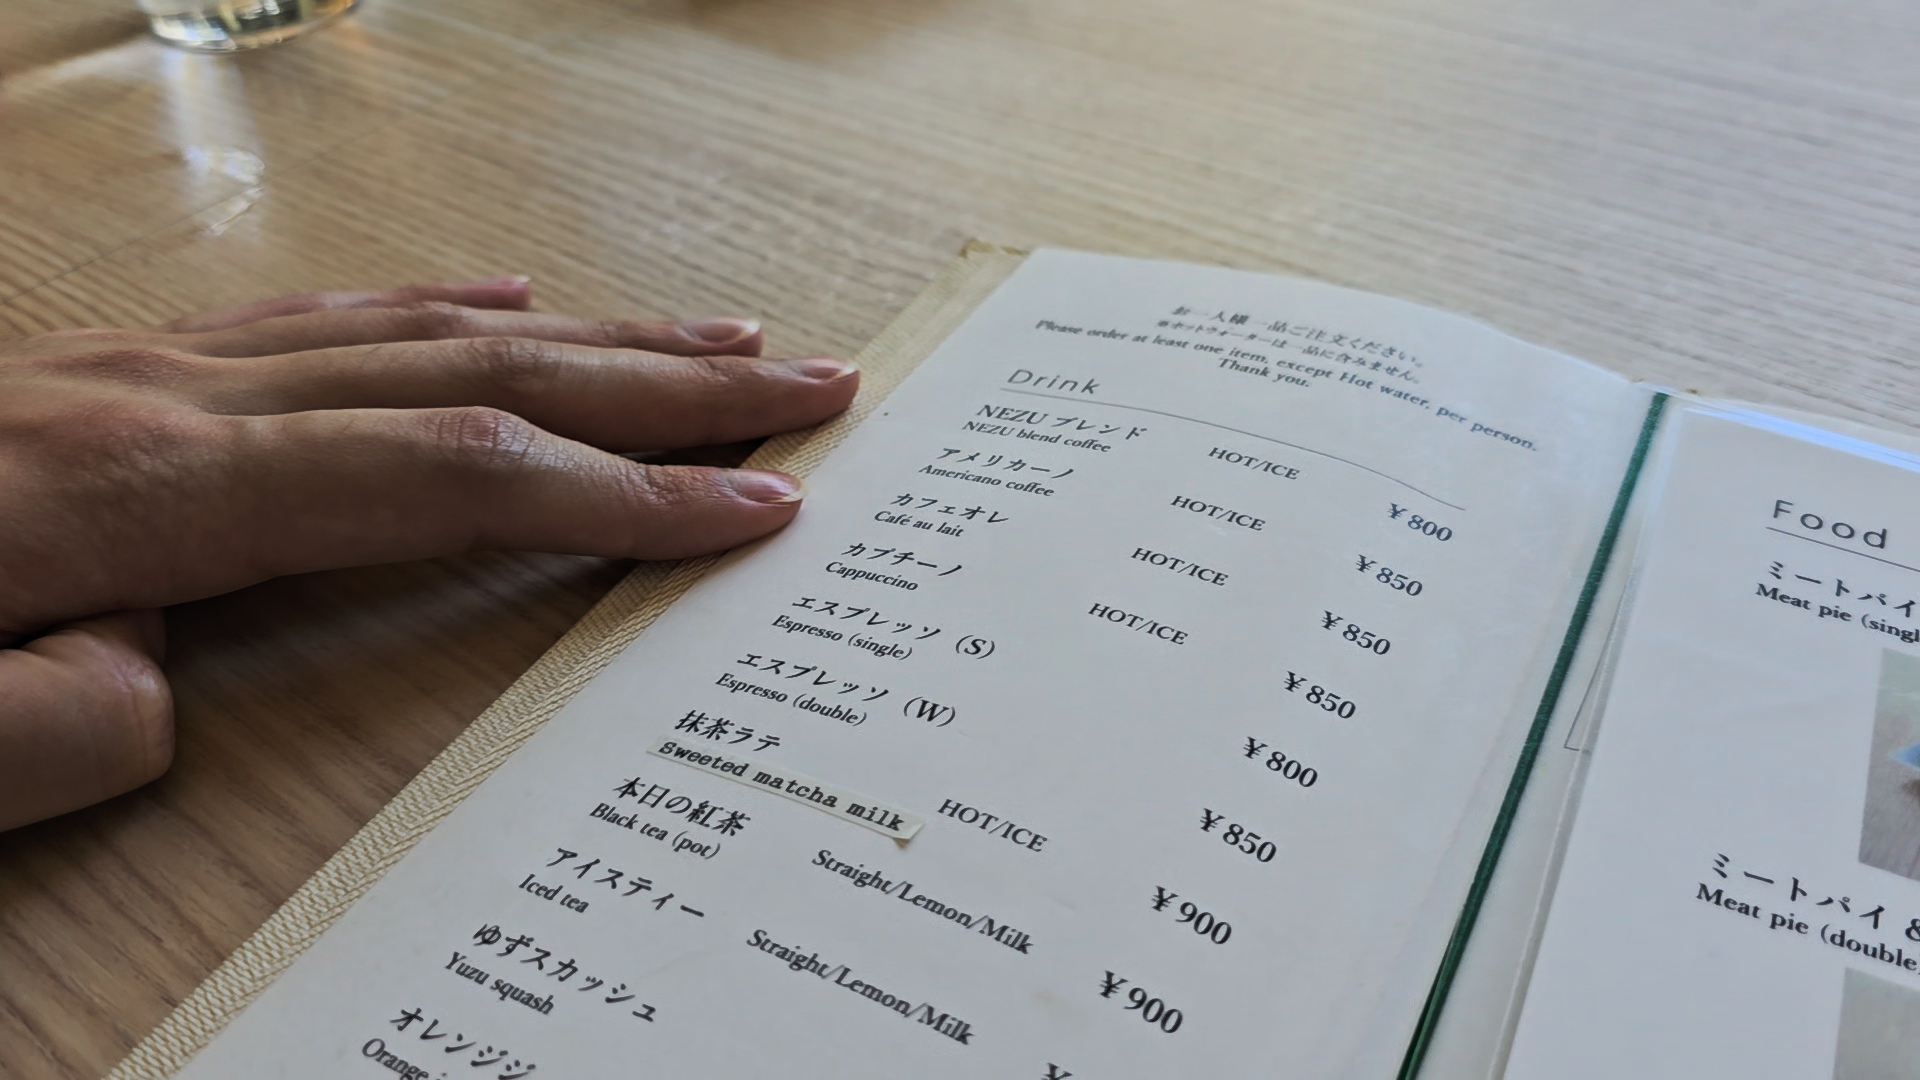 お一人様一品ご注文ください。
※ホットウォーターは一品に含みません。
Please order at least one item, except Hot water, per person.
Thank you.
Drink
NEZU ブレンド HOT/ICE ¥800
NEZU blend coffee
アメリカーノ HOT/ICE ¥850
Americano coffee
カフェオレ HOT/ICE ¥850
Café au lait
カプチーノ HOT/ICE ¥850
Cappuccino
エスプレッソ (S) ¥800
Espresso (single)
エスプレッソ (W) ¥850
Espresso (double)
抹茶ラテ HOT/ICE ¥900
Sweeted matcha milk
本日の紅茶 Straight/Lemon/Milk ¥900
Black tea (pot)
アイスティー Straight/Lemon/Milk ¥
Iced tea
ゆずスカッシュ
Yuzu squash
オレンジジ
Orange
Food
ミートパイ
Meat pie (singl
ミートパイ &
Meat pie (double,